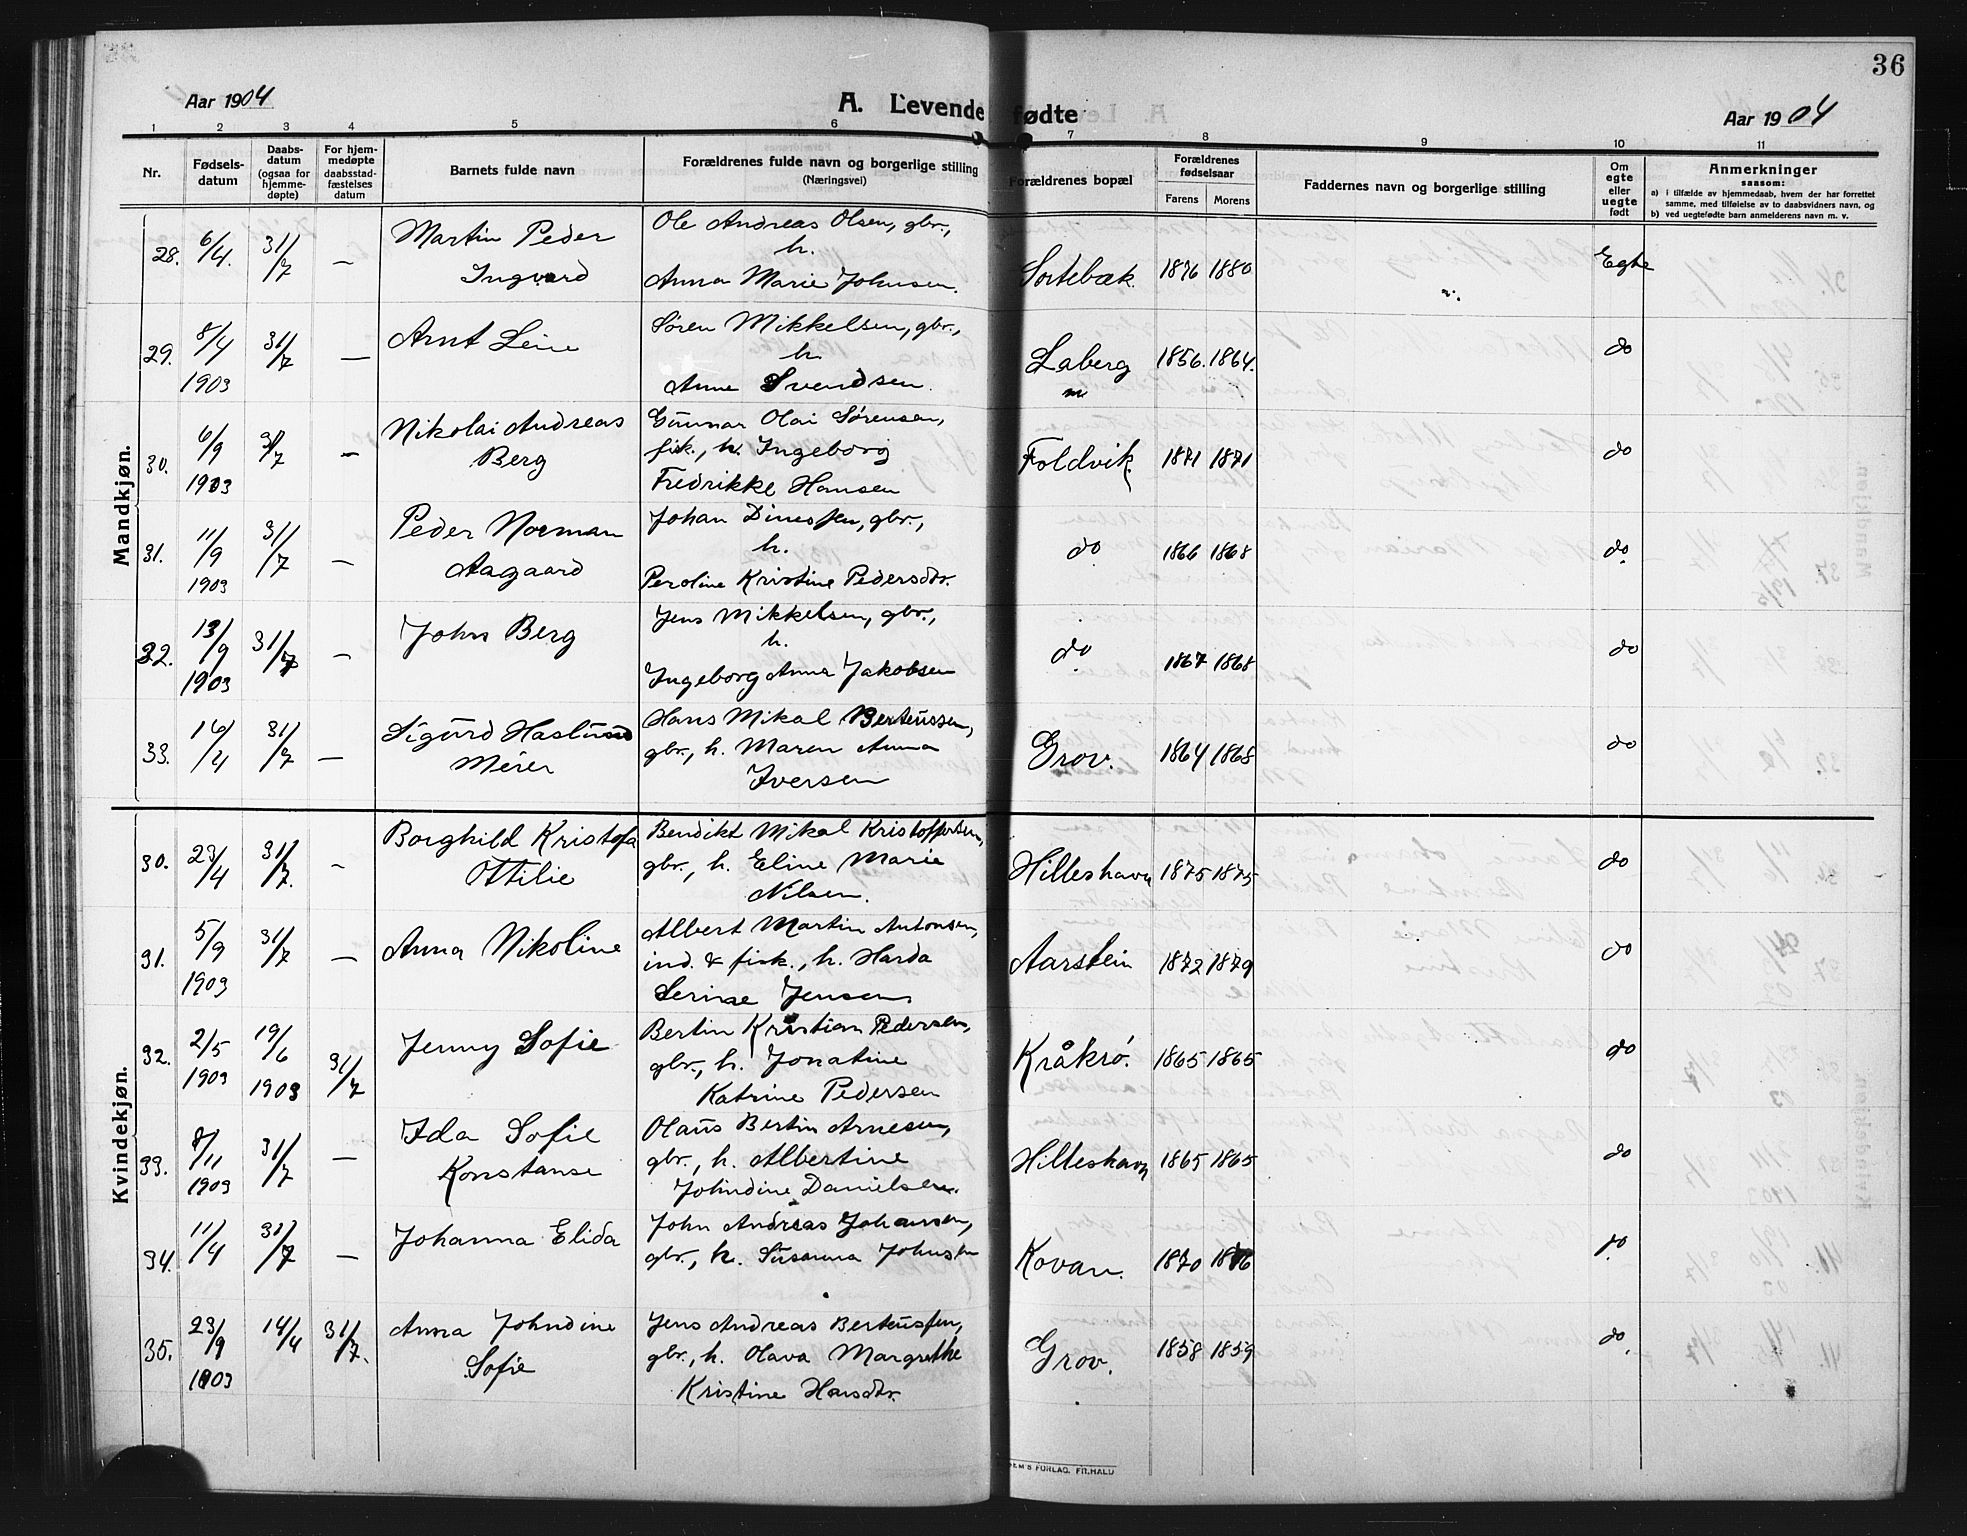 36
Aar 1904
A. Levende fødte
Aar 1904
1 2 3 4 5 6 7 8 9 10 11
Nr.
Fødsels-
datum
Daabs-
datum
(ogsaa for
hjemme-
døpte)
For hjem-
medøpte
daabsstad-
fæstelses
datum
Barnets fulde navn
Forældrenes fulde navn og borgerlige stilling
(Næringsvei)
Forældrenes bopæl
Forældrenes
fødselsaar
Farens Morens
Faddernes navn og borgerlige stilling
Om
egte
eller
uegte
født
Anmerkninger
saasom:
a) i tilfælde av hjemmedaab, hvem der har forrettet
samme, med tilføielse av to daabsvidners navn, og
b) ved uegtefødte barn anmelderens navn m. v.
Mandkjøn.
28. 6/4. 31/7 — Martin Peder
Ingvard
Ole Andreas Olsen, gbr.,
h.
Anna Marie Johnsen.
Sortebæk. 1876 1880 Egte
29. 8/4 1903 31/7 — Arnt Leine
Søren Mikkelsen, gbr.,
h.
Anne Svendsen.
Laberg 1856. 1864. do
30. 6/9 1903 31/7 — Nikolai Andreas
Berg
Gunnar Olai Sørensen,
fisk., h. Ingeborg
Fredrikke Hansen
Foldvik 1871 1871 do
31. 11/9 1903 31/7 — Peder Norman
Aagaard
Johan Dinessen, gbr.,
h.
Peroline Kristine Pedersdtr.
do 1866 1868 do
32. 13/9 1903 31/7 — John Berg
Jens Mikkelsen, gbr.,
h.
Ingeborg Anna Jakobsen
do 1867 1868 do
33. 16/4 31/7 — Sigurd Haslund
Meier
Hans Mikal Berteussen,
gbr., h. Maren Anna
Iversen
Grov. 1864 1868 do
Kvindekjøn.
30. 23/4 31/7. — Borghild Kristofa
Ottilie
Bendikt Mikal Kristoffersen,
gbr., h. Eline Marie
Nilsen.
Hilleshavn 1875 1875 do
31. 5/9 1903 31/7 — Anna Nikoline
Albert Martin Antonsen,
ind. & fisk., h. Harda
Serine Jensen
Aarstein 1872 1879 do
32. 2/5 1903 19/6 1903 31/7 Jenny Sofie
Bertin Kristian Pedersen,
gbr., h. Jonatine
Katrine Pedersen
Kråkrø. 1865 1865 do
33. 8/11 1903 31/7 — Ida Sofie
Konstanse
Olaus Bertin Arnesen,
gbr., h. Albertine
Johndine Danielsen.
Hilleshavn 1865 1865 do
34. 11/4 31/7 — Johanna Elida
John Andreas Johansen,
gbr., h. Susanna Johnsen
Kovan. 1870 1876 do
35. 23/9 1903 14/4 31/7. Anna Johndine
Sofie
Jens Andreas Berteussen,
gbr., h. Olava Margrethe
Kristine Hansdtr.
Grov. 1858 1859 do.
FORLAG, FR.HALD